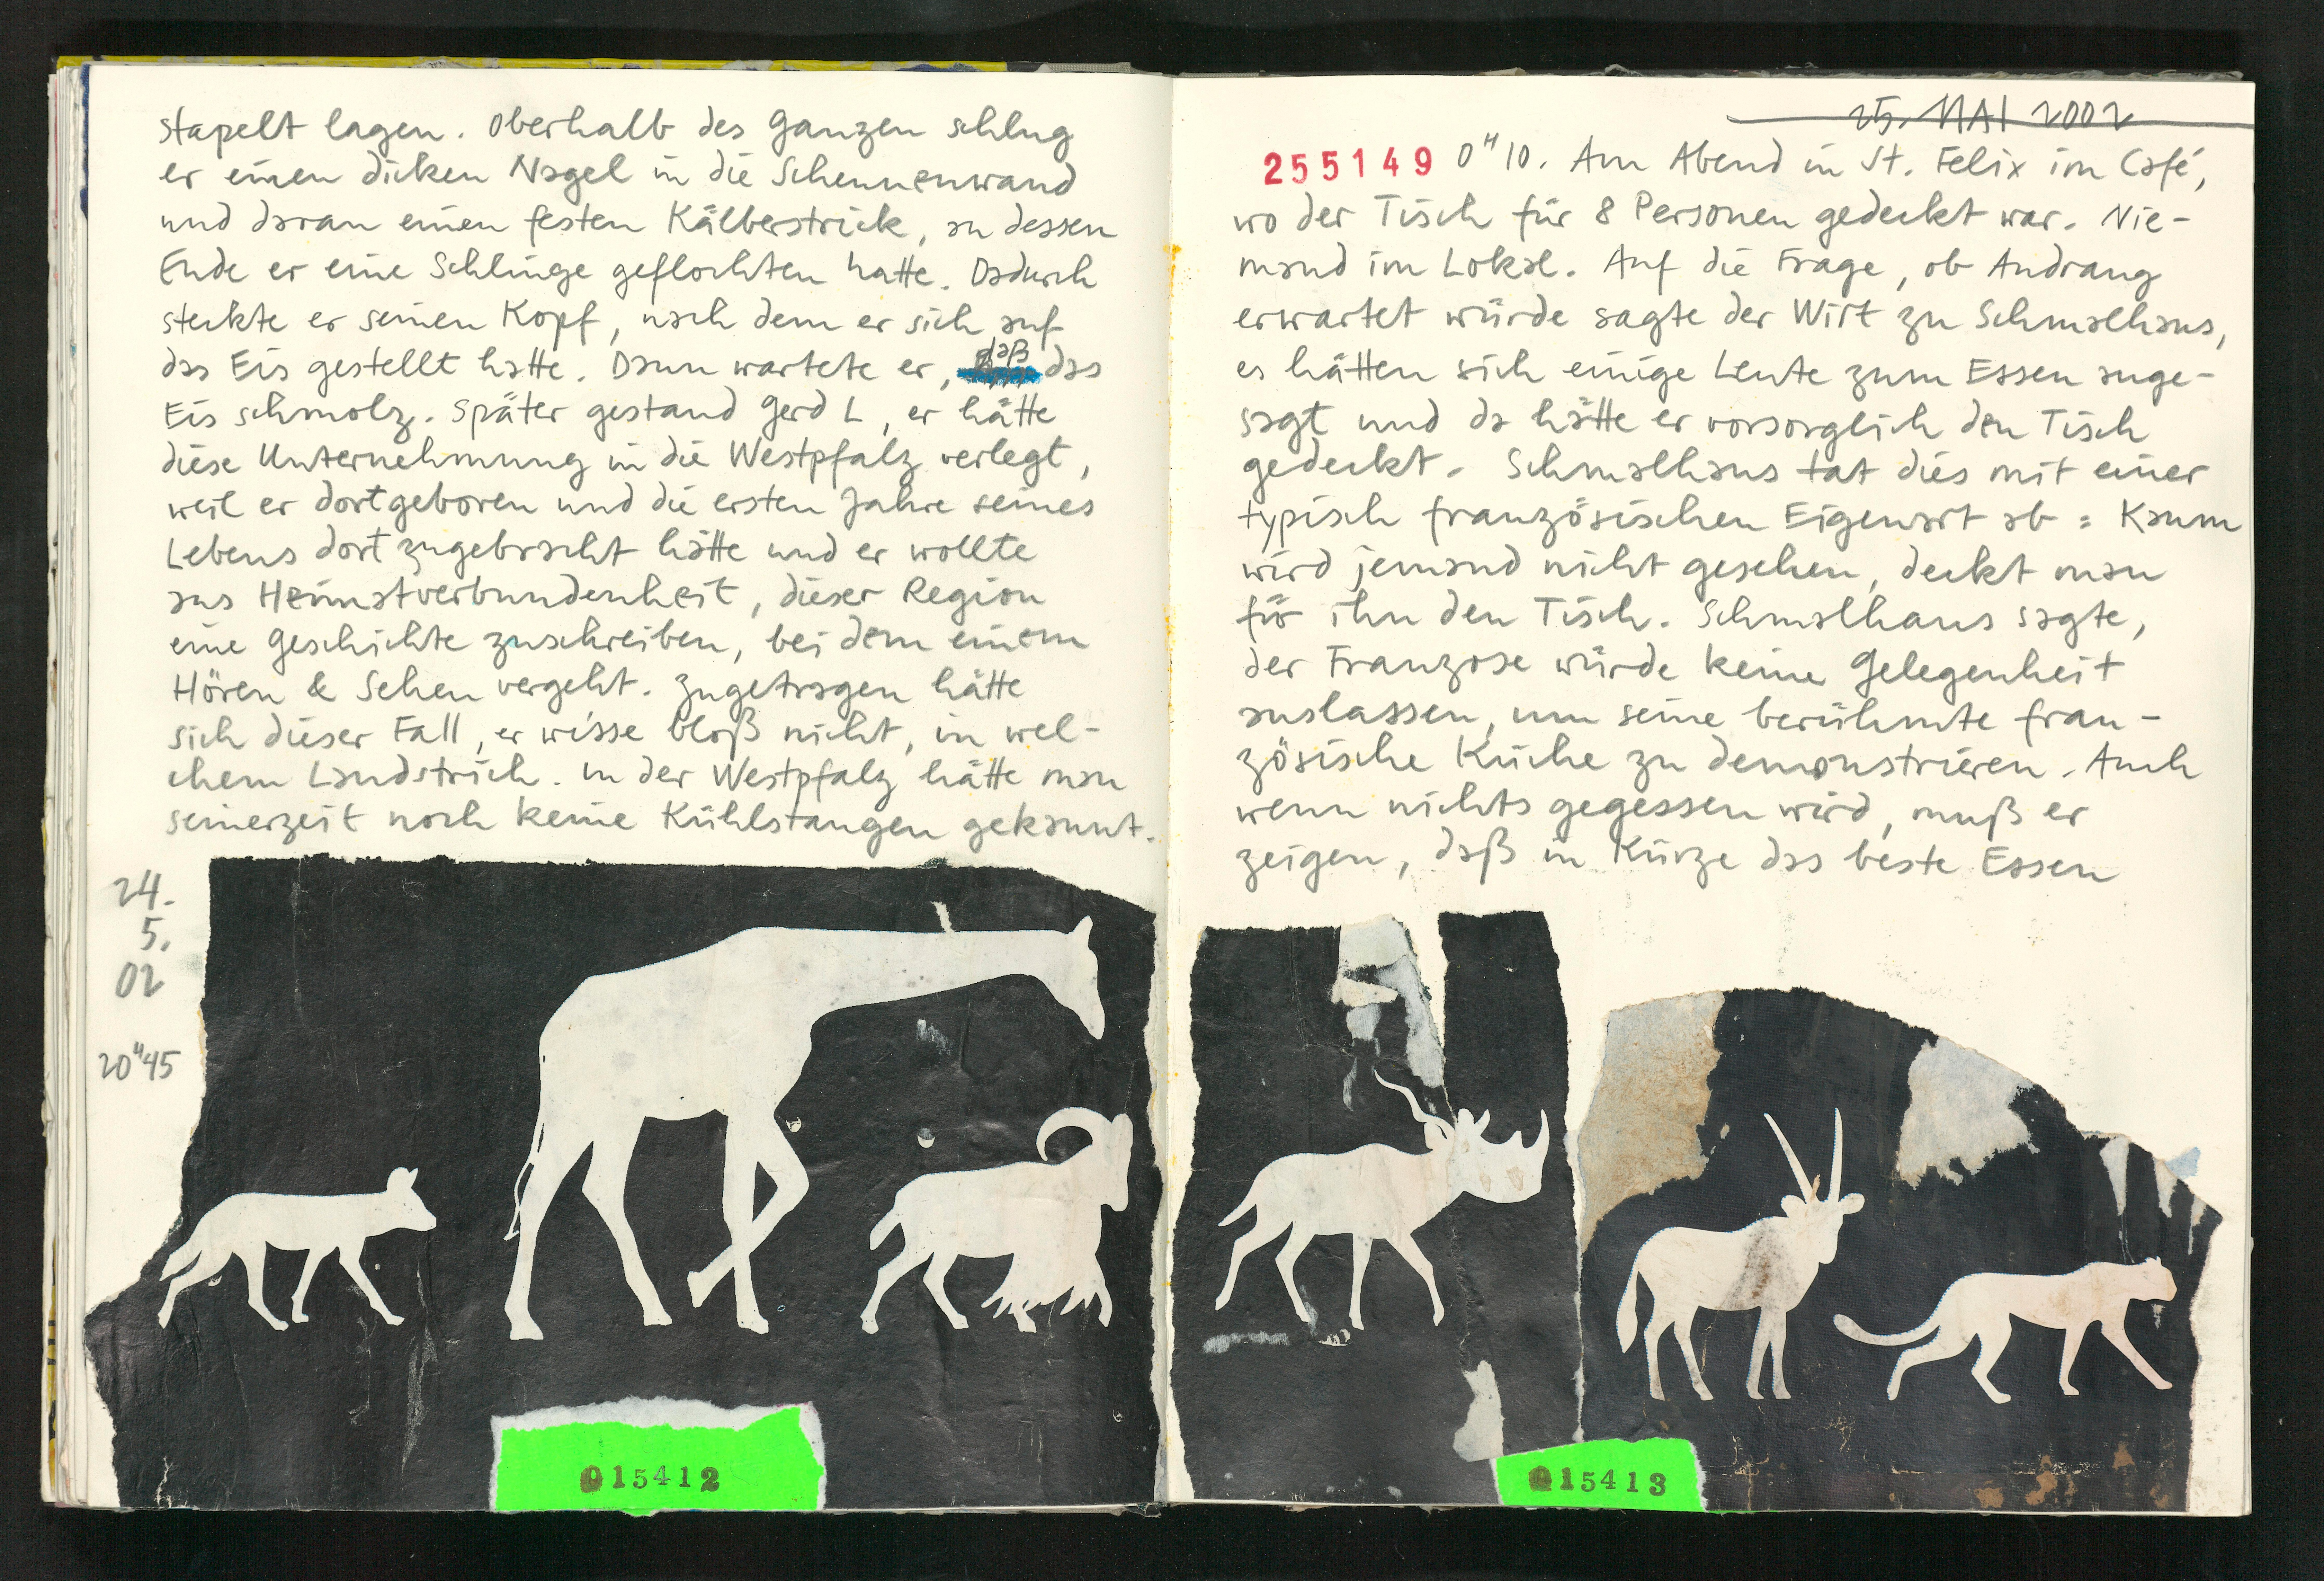 stapelt lagen. Oberhalb des Ganzen schlug
er einen dicken Nagel in die Scheunenwand
und daran einen festen Kälberstrick, an dessen
Ende er eine Schlinge geflochten hatte. Dadurch
steckte er seinen Kopf, nach dem er sich auf
das Eis gestellt hatte. Dann wartete er, daß das
Eis schmolz. Später gestand Gerd L, er hätte
diese Unternehmung in die Westpfalz verlegt,
weil er dort geboren und die ersten Jahre seines
Lebens dort zugebracht hätte und er wollte
aus Heimatverbundenheit, dieser Region
eine Geschichte zuschreiben, bei dem einem
Hören & Sehen vergeht. Zugetragen hätte
sich dieser Fall, er wisse bloß nicht, in wel-
chem Landstrich. In der Westpfalz hätte man
seinerzeit noch keine Kühlstangen gekannt.
24.
5.
02
20H45
015412
25. MAI 2002
255149 0H10. Am Abend in St. Felix im Café,
wo der Tisch für 8 Personen gedeckt war. Nie-
mand im Lokal. Auf die Frage, ob Andrang
erwartet würde sagte der Wirt zu Schmalhaus,
es hätten sich einige Leute zum Essen ange-
sagt und da hätte er vorsorglich den Tisch
gedeckt. Schmalhaus tat dies mit einer
typisch französischen Eigenart ab: Kaum
wird jemand nicht gesehen, deckt man
für ihn den Tisch. Schmalhaus sagte,
der Franzose würde keine Gelegenheit
auslassen, um seine berühmte fran-
zösische Küche zu demonstrieren. Auch
wenn nichts gegessen wird, muß er
zeigen, daß in Kürze das beste Essen
015413